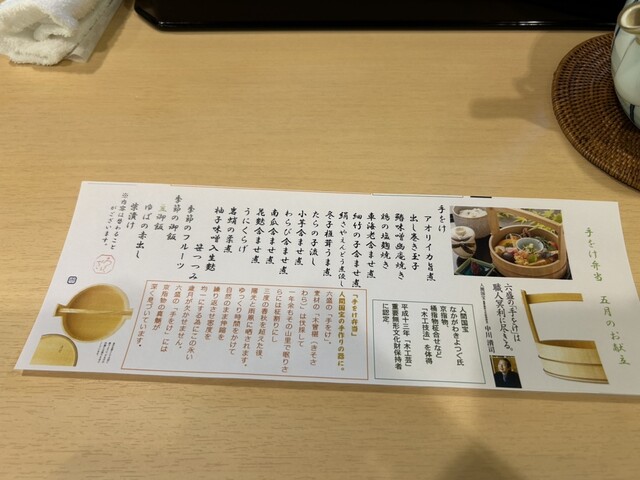 手をけ弁当　五月のお献立
六盛の手をけは
職人冥利に尽きる。
中川清司
人間国宝
なかがわきよつぐ氏
京指物、
桶指物糀合せなど
「木工技法」を体得
平成十三年「木工芸」
重要無形文化財保持者
に認定
手をけ
アオリイカ旨煮
出し巻き玉子
鰆味噌幽庵焼き
鶏の塩麹焼き
車海老含ませ煮
細竹の子含ませ煮
絹さやえんどう煮浸し
冬子椎茸うま煮
たらの子流し
小芋含ませ煮
わらび含ませ煮
南瓜含ませ煮
花麩含ませ煮
うにくらげ
笹つつみ
季節のフルーツ
季節の御飯
白御飯
ゆばの赤出し
柴漬け
※内容は替わること
がございます。
「手をけ弁当」
人間国宝の手作りの器に。
六盛の「手をけ」。
素材の「木曽椹（きそさ
わら）」は伐採して
一年余もその山里で眠りさ
らには柾割りにし
三度の春秋を越えた後、
陽光に雨風に晒されます。
ゆっくり時間をかけて
自然のまま伸縮を
繰り返させ密度を
均一にする為にこの永い
歳月が欠かせません。
六盛の「手をけ」には
京指物の真髄が
深く息づいています。